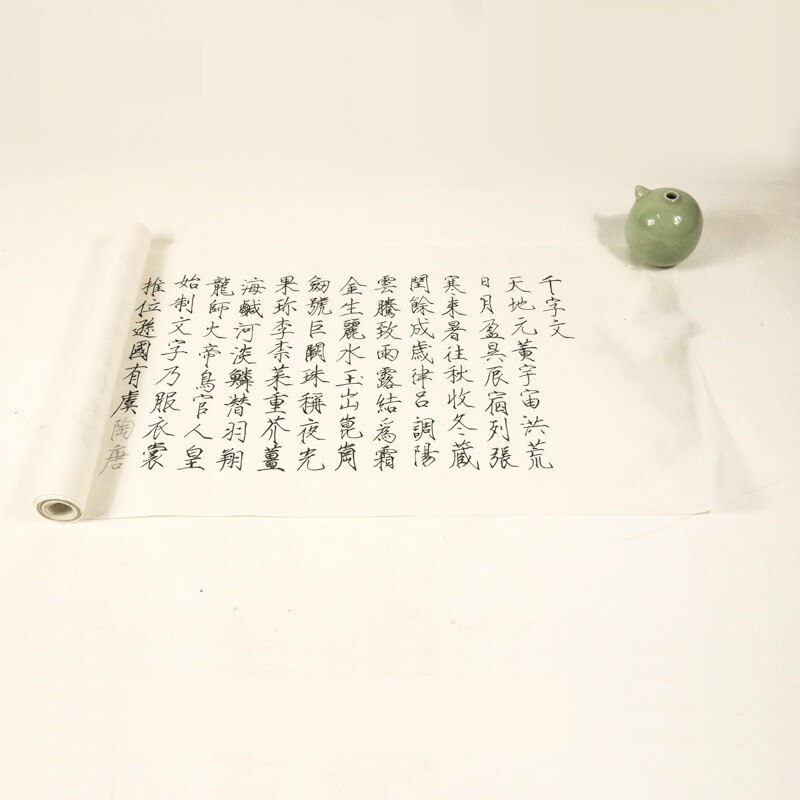 千字文
天地元黃宇宙洪荒
日月盈昃辰宿列張
寒来暑往秋收冬藏
閏餘成歳律呂調陽
雲騰致雨露結爲霜
金生麗水玉出崑崗
劔號巨闕珠稱夜光
果珎李柰菜重芥薑
海鹹河淡鱗替羽翔
龍師火帝鳥官人皇
始制文字乃服衣裳
推位遜國有虞陶唐